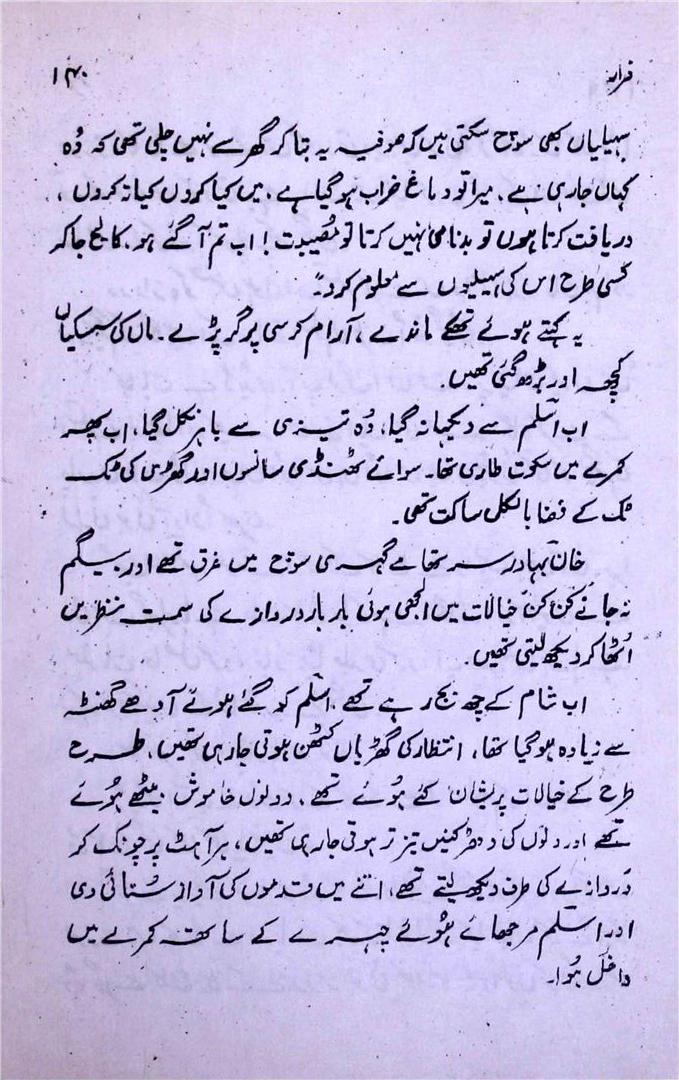 فرار
۱۴۰
سہیلیاں بھی سوچ سکتی ہیں کہ صوفیہ یہ بتا کر گھر سے نہیں چلی تھی کہ وُہ
کہاں جا رہی ہے، میرا تو دماغ خراب ہو گیا ہے، میں کیا کروں کیا نہ کروں،
دریافت کرتا ہوں تو بدنامی نہیں کرتا تو مصیبت! اب تم آ گئے ہو، کالج جا کر
کسی طرح اس کی سہیلیوں سے معلوم کرو۔"
یہ کہتے ہوئے تھکے ماندے، آرام کرسی پر گر پڑے۔ ماں کی سسکیاں
کچھ اور بڑھ گئی تھیں۔
اب اسلم سے دیکھا نہ گیا، وُہ تیزی سے باہر نکل گیا، اب پھر
کمرے میں سکوت طاری تھا۔ سوائے ٹھنڈی سانسوں اور گھڑی کی ٹک
ٹک کے فضا بالکل ساکت تھی۔
خان بہادر سر تھامے گہری سوچ میں غرق تھے اور بیگم
نہ جانے کن کن خیالات میں الجھی ہوئی بار بار دروازے کی سمت نظریں
اُٹھا کر دیکھ لیتی تھیں۔
اب شام کے چھ بج رہے تھے، اسلم کو گئے ہوئے آدھے گھنٹہ
سے زیادہ ہو گیا تھا، انتظار کی گھڑیاں کٹھن ہوتی جا رہی تھیں، طرح
طرح کے خیالات پریشان کئے ہُوئے تھے، دونوں خاموش بیٹھے ہُوئے
تھے اور دلوں کی دھڑکنیں تیز تر ہوتی جا رہی تھیں، ہر آہٹ پر چونک کر
دروازے کی طرف دیکھ لیتے تھے، اتنے میں قدموں کی آواز سُنائی دی
اور اسلم مرجھائے ہُوئے چہرے کے ساتھ کمرے میں
داخل ہُوا۔